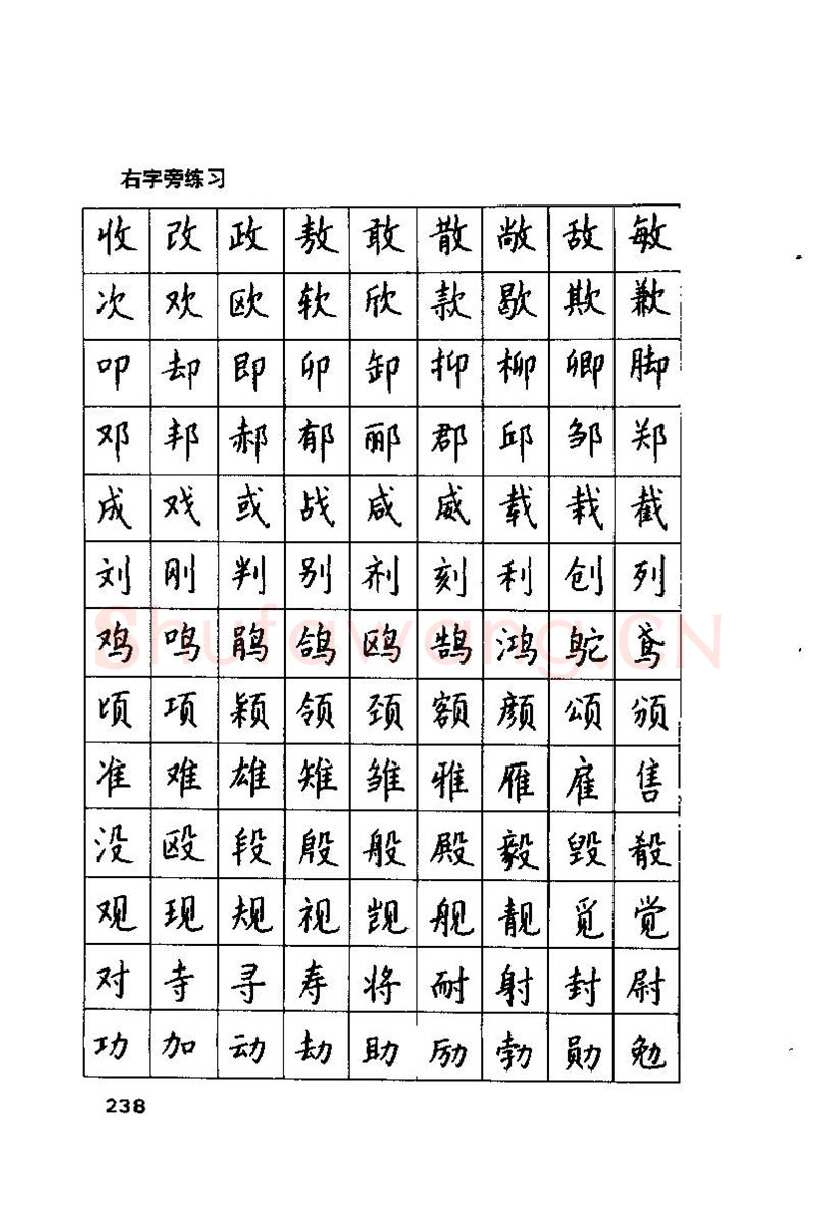 右字旁练习
收 改 政 敖 敢 散 敞 敌 敏
次 欢 欧 软 欣 款 歇 欺 歉
叩 却 即 卯 卸 抑 柳 卿 脚
邓 邦 郝 郁 郦 郡 邱 邹 郑
成 戏 或 战 咸 威 载 栽 截
刘 刚 判 别 剂 刻 利 创 列
鸡 鸣 鹃 鸽 鸥 鹄 鸿 鸵 鸢
顷 项 颖 领 颈 额 颜 颂 颁
准 难 雄 雉 雏 雅 雁 雇 售
没 殴 段 殷 般 殿 毅 毁 骰
观 现 规 视 觊 舰 靓 觅 觉
对 寺 寻 寿 将 耐 射 封 尉
功 加 动 劫 助 励 勃 勋 勉
Shufawang.CN
238